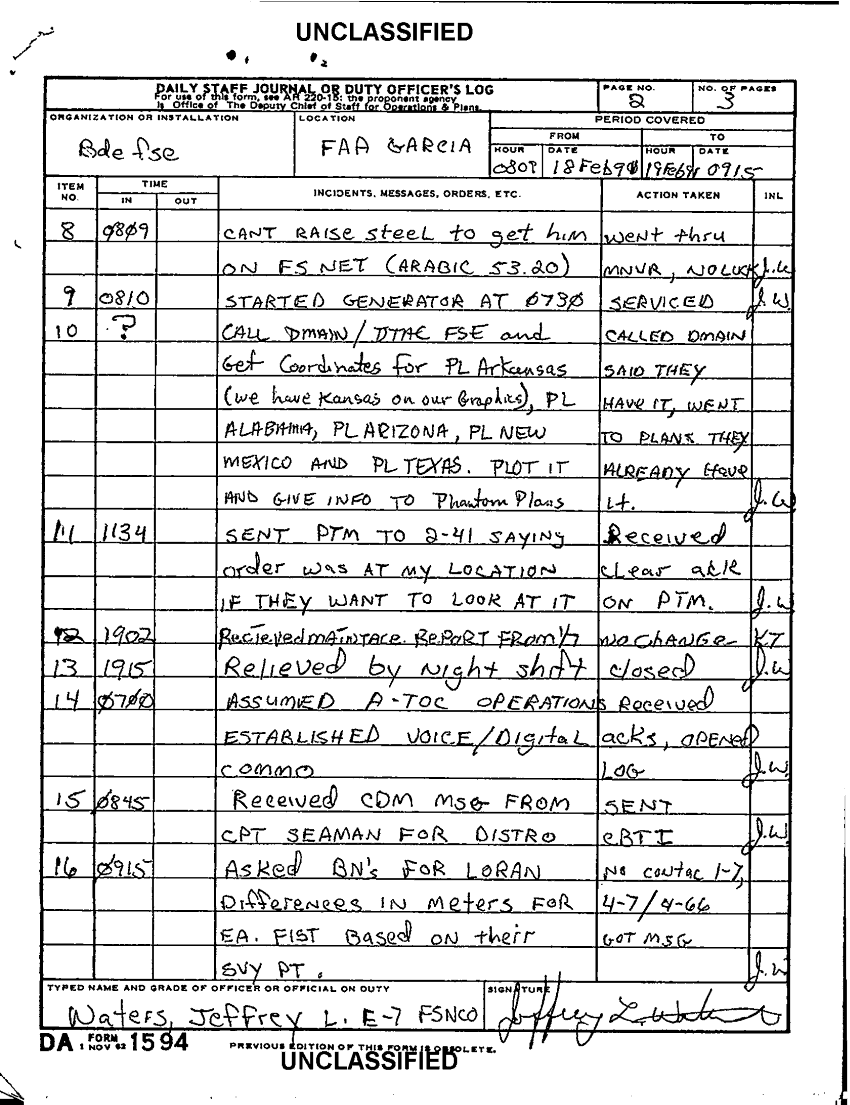 UNCLASSIFIED
DAILY STAFF JOURNAL OR DUTY OFFICER'S LOG
For use of this form, see AR 220-15; the proponent agency
is Office of The Deputy Chief of Staff for Operations & Plans.
PAGE NO.
2
NO. OF PAGES
3
ORGANIZATION OR INSTALLATION
Bde fse
LOCATION
FAA GARCIA
PERIOD COVERED
FROM
TO
HOUR DATE HOUR DATE
18 Feb 19 Feb 0915
ITEM NO.
TIME
IN OUT
INCIDENTS, MESSAGES, ORDERS, ETC.
ACTION TAKEN
INL
8 0809 CANT RAISE steel to get him went thru
ON FS NET (ARABIC 53.20) MNVR, NO LUCK J.W
9 0810 STARTED GENERATOR AT 0730 SERVICED J.W.
10 ? CALL DMAIN/DTAC FSE and CALLED DMAIN
Get Coordinates for PL Arkansas SAID THEY
(we have Kansas on our Graphics), PL HAVE IT, WENT
ALABAMA, PL ARIZONA, PL NEW TO PLANS THEY
MEXICO AND PL TEXAS. PLOT IT ALREADY HAVE
AND GIVE INFO TO Phantom Plans it. J.W
11 1134 SENT PTM TO 2-41 SAYING Received
order was AT MY LOCATION clear
IF THEY WANT TO LOOK AT IT ON PTM. J.W
12 1902 REPORT FROM no CHANGE KT
13 1915 Relieved by Night shift closed J.W
14 0700 ASSUMED A-TOC OPERATIONS Received
ESTABLISHED VOICE/Digital acks, OPENED
commo LOG J.W.
15 0845 Received CDM MSG FROM SENT
CPT SEAMAN FOR DISTRO CBTI J.W
16 0915 Asked BN's FOR LORAN No contac 1-7,
Differences IN Meters FOR 4-7/4-66
EA. FIST Based on their GOT MSG
SVY PT. J.W
TYPED NAME AND GRADE OF OFFICER OR OFFICIAL ON DUTY
Waters, Jeffrey L. E-7 FSNCO
SIGNATURE
Jeffrey L. Waters
DA FORM 1 NOV 62 1594
PREVIOUS EDITION OF THIS FORM IS OBSOLETE.
UNCLASSIFIED